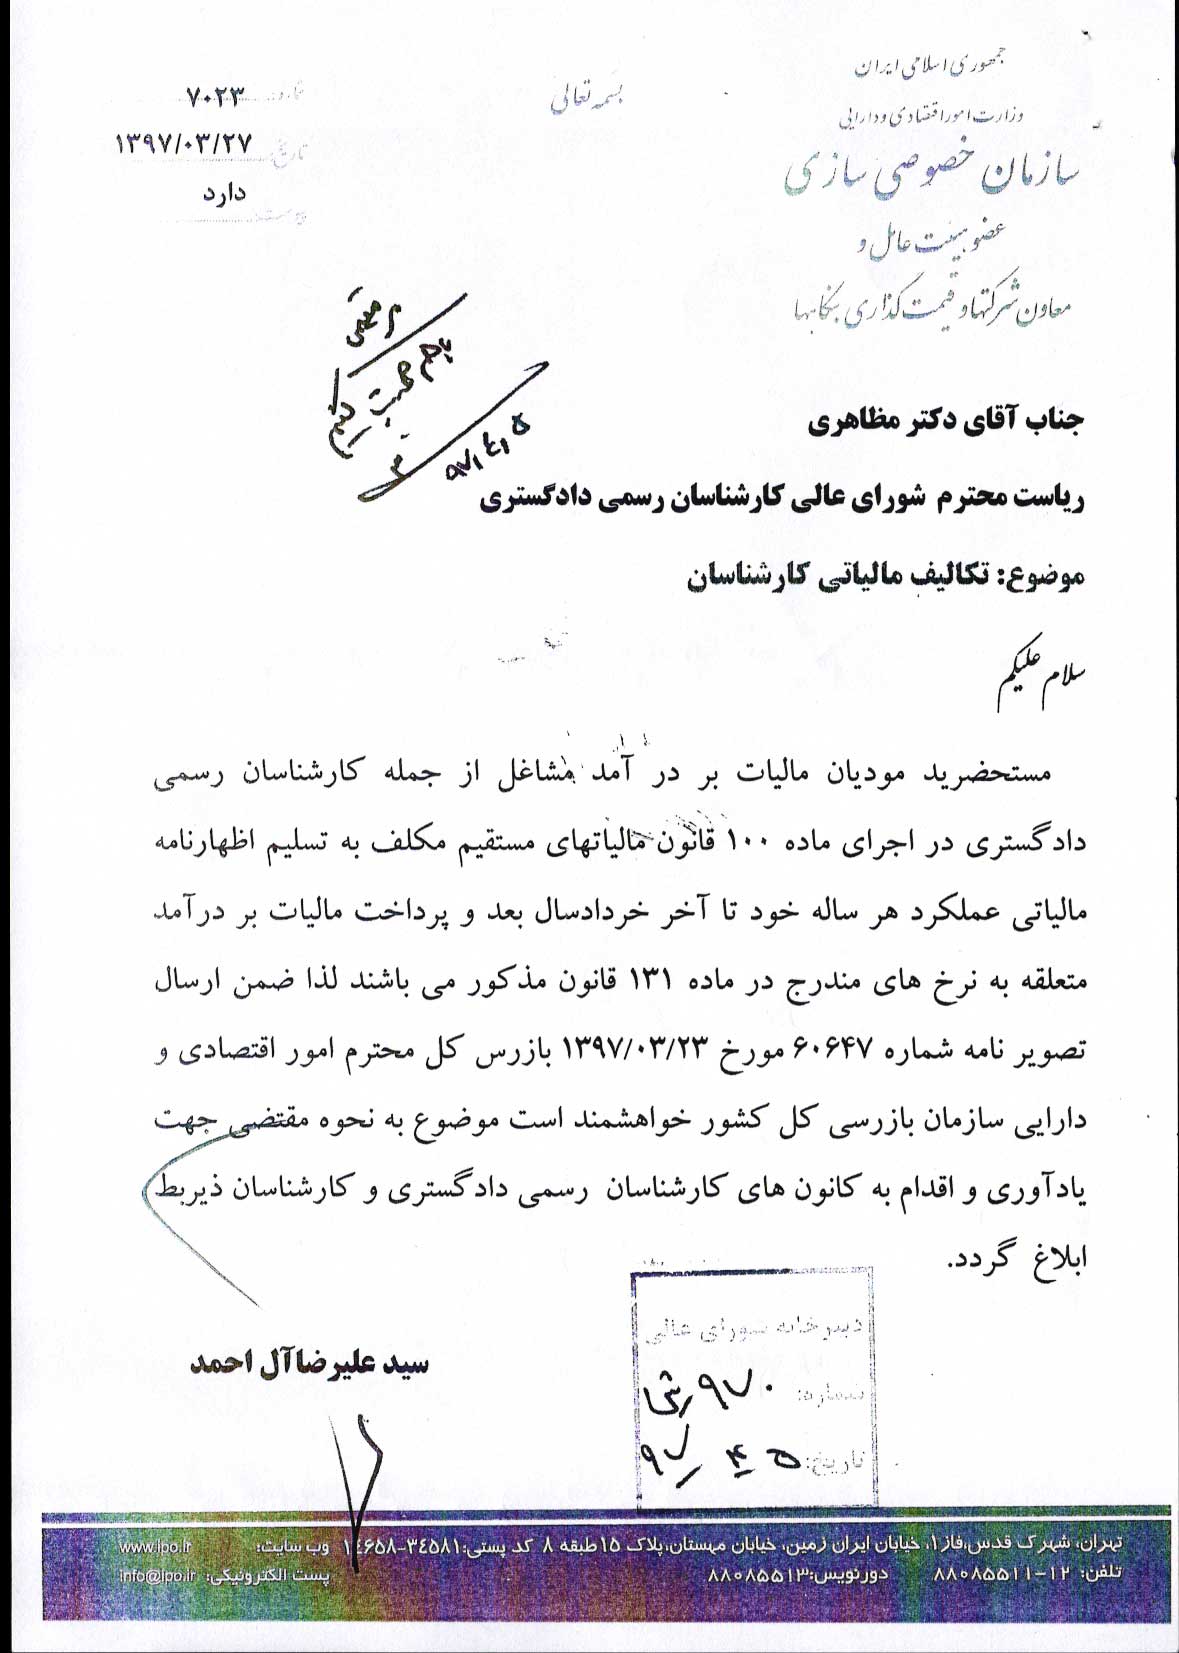 جمهوری اسلامی ایران
وزارت امور اقتصادی و دارایی
سازمان خصوصی سازی
عضو هیئت عامل و
معاون شرکتها و قیمت گذاری بنگاهها
بسمه تعالی
۷۰۲۳
تاریخ: ۱۳۹۷/۰۳/۲۷
دارد
۹۷/۴/۵
جناب آقای دکتر مظاهری
ریاست محترم شورای عالی کارشناسان رسمی دادگستری
موضوع: تکالیف مالیاتی کارشناسان
سلام علیکم
مستحضرید مودیان مالیات بر در آمد مشاغل از جمله کارشناسان رسمی
دادگستری در اجرای ماده ۱۰۰ قانون مالیاتهای مستقیم مکلف به تسلیم اظهارنامه
مالیاتی عملکرد هر ساله خود تا آخر خردادسال بعد و پرداخت مالیات بر درآمد
متعلقه به نرخ های مندرج در ماده ۱۳۱ قانون مذکور می باشند لذا ضمن ارسال
تصویر نامه شماره ۶۰۶۴۷ مورخ ۱۳۹۷/۰۳/۲۳ بازرس کل محترم امور اقتصادی و
دارایی سازمان بازرسی کل کشور خواهشمند است موضوع به نحوه مقتضی جهت
یادآوری و اقدام به کانون های کارشناسان رسمی دادگستری و کارشناسان ذیربط
ابلاغ گردد.
دبیرخانه شورای عالی
شماره:
تاریخ: ۵ ۴ ۹۷
سید علیرضا آل احمد
تهران، شهرک قدس،فاز۱، خیابان ایران زمین، خیابان مهستان،پلاک ۱۵ طبقه ۸ کد پستی:۳۴۵۸۱-۱۴۶۵۸ وب سایت: www.ipo.ir
تلفن: ۱۲-۸۸۰۸۵۵۱۱ دورنویس:۸۸۰۸۵۵۱۳ پست الکترونیکی: info@ipo.ir